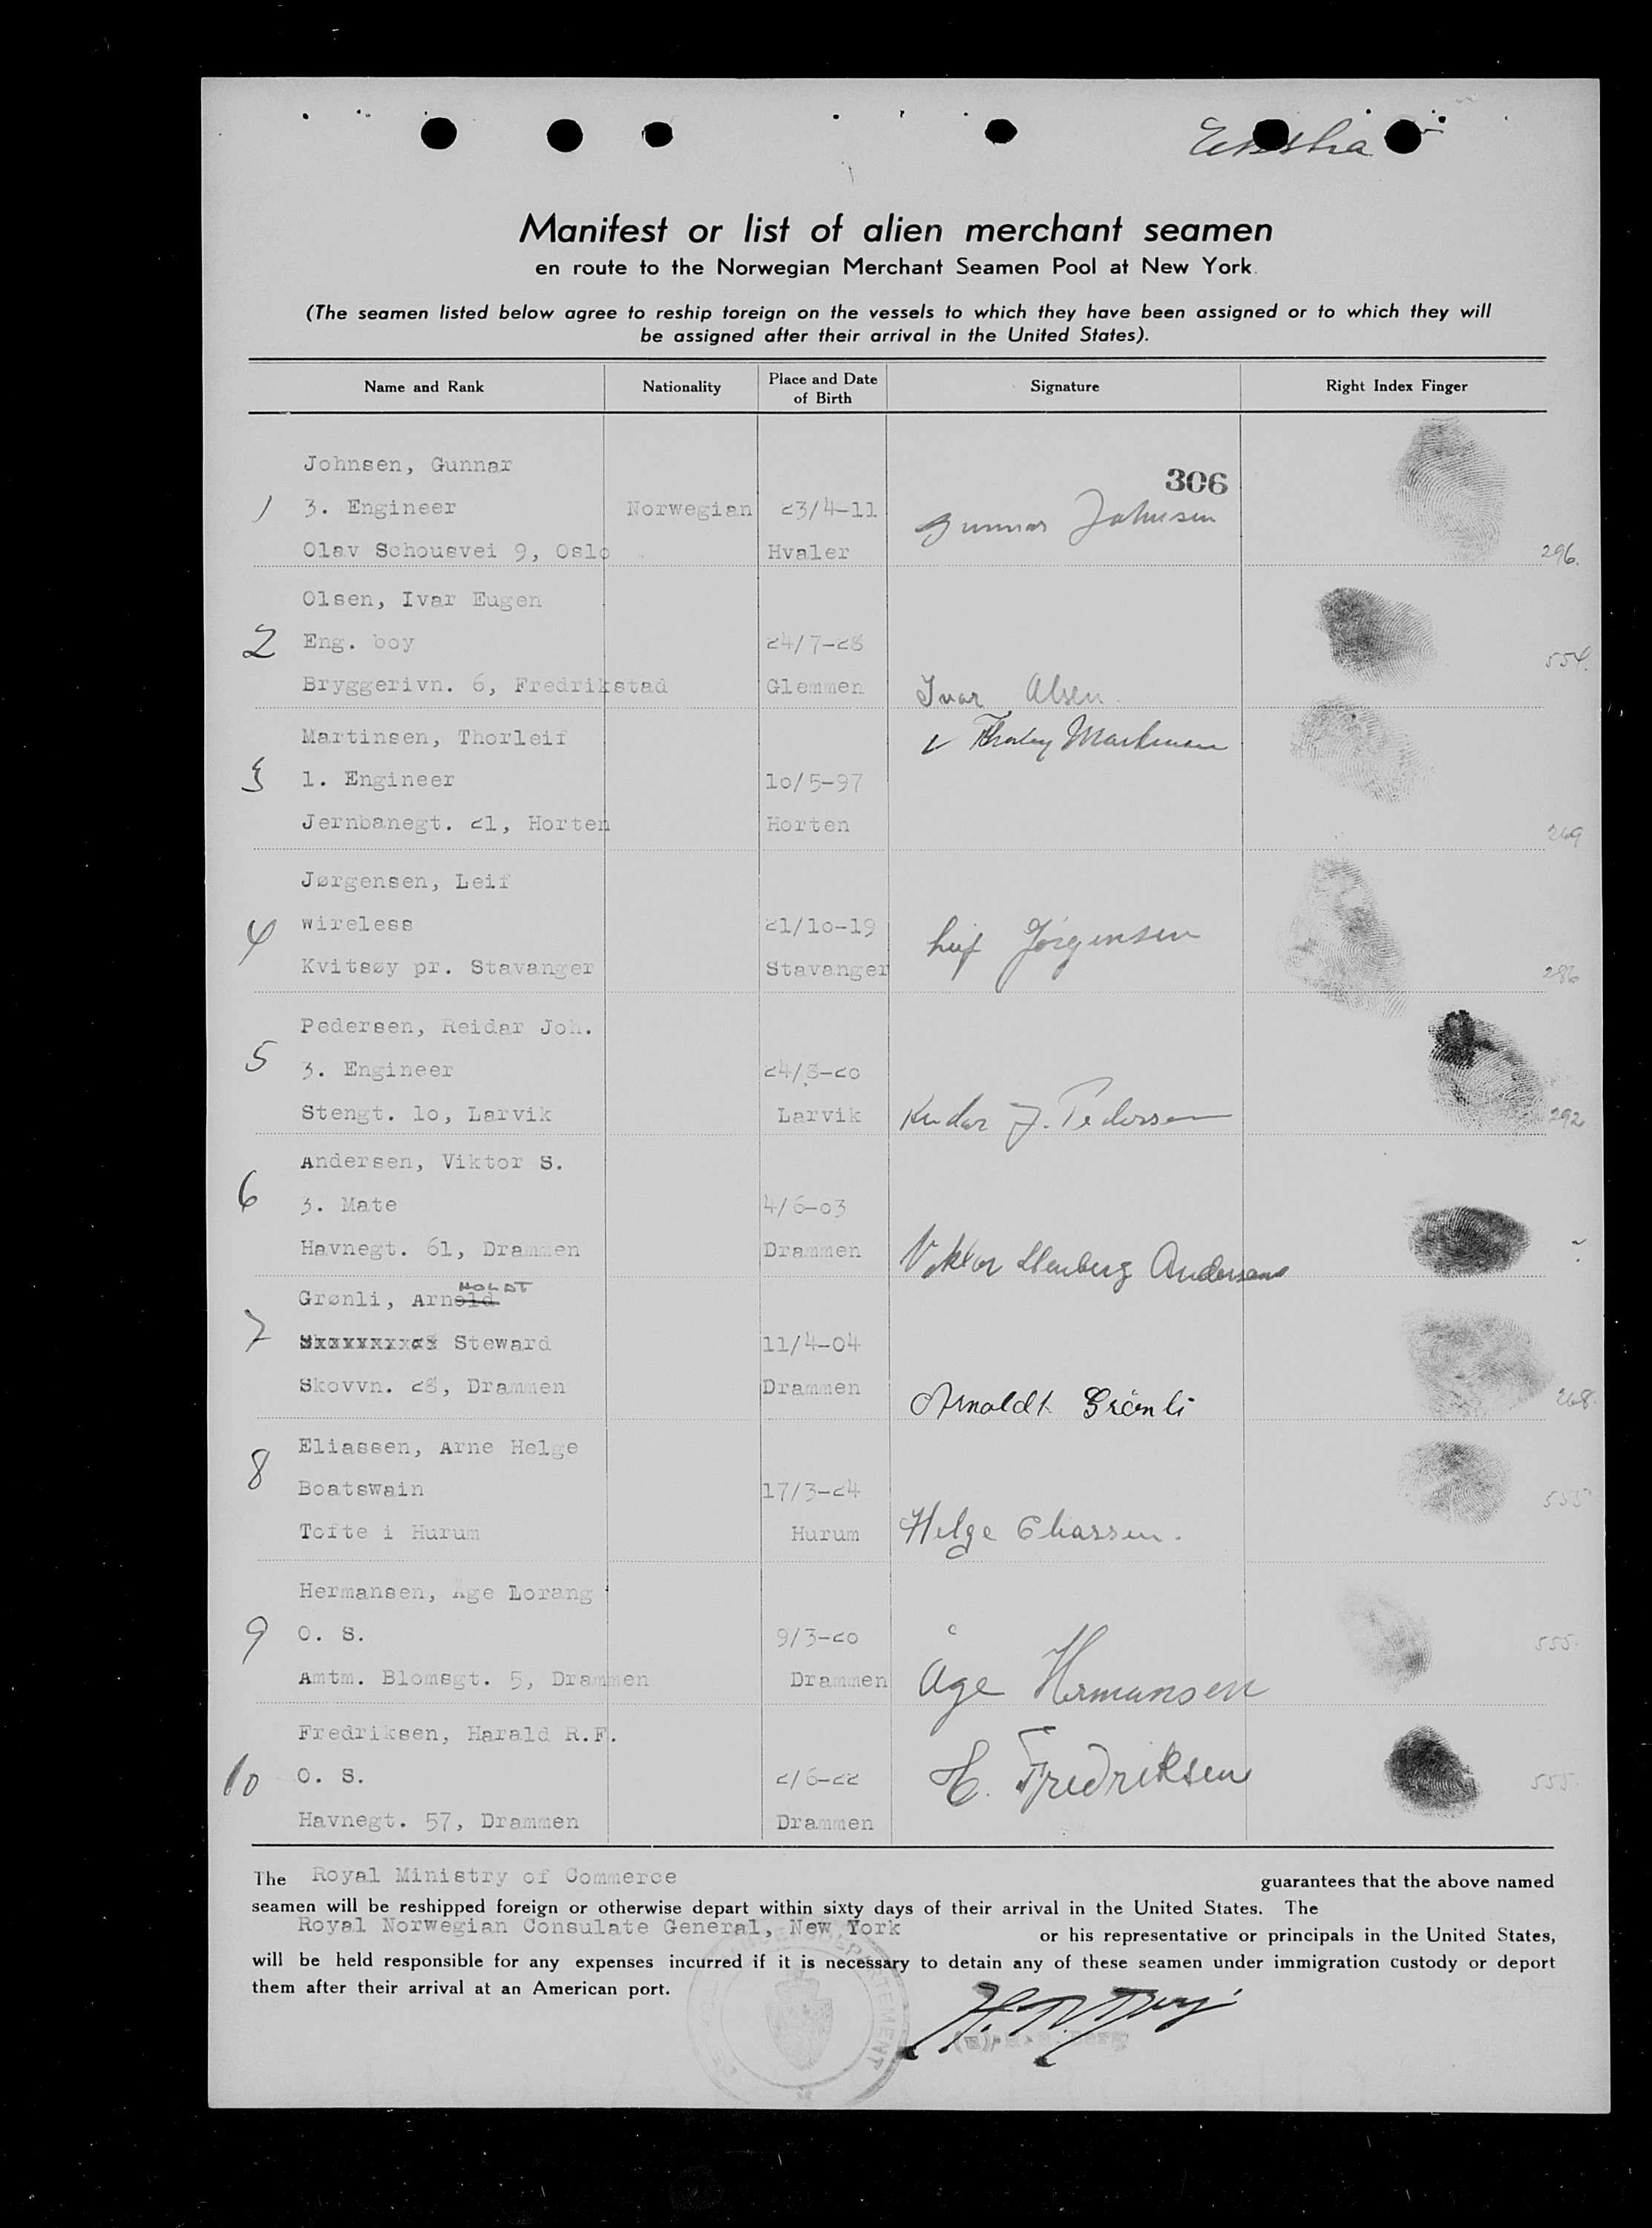 Manifest or list of alien merchant seamen
en route to the Norwegian Merchant Seamen Pool at New York.
(The seamen listed below agree to reship foreign on the vessels to which they have been assigned or to which they will
be assigned after their arrival in the United States).
Name and Rank Nationality Place and Date of Birth Signature Right Index Finger
Johnsen, Gunnar
306
1 3. Engineer Norwegian 23/4-11 Gunnar Johnsen
Olav Schousvei 9, Oslo Hvaler 296.
Olsen, Ivar Eugen
2 Eng. boy 24/7-28 554.
Bryggerivn. 6, Fredrikstad Glemmen Ivar Olsen.
Martinsen, Thorleif
3 1. Engineer 10/5-97
Jernbanegt. 21, Horten Horten 269
Jørgensen, Leif
4 Wireless 21/10-19 Leif Jørgensen
Kvitsøy pr. Stavanger Stavanger 286
Pedersen, Reidar Joh.
5 3. Engineer 24/8-20
Stengt. 10, Larvik Larvik Reidar J. Pedersen 292
Andersen, Viktor S.
6 3. Mate 4/6-03
Havnegt. 61, Drammen Drammen Viktor Andersen
Grønli, Arnold NOLDT
7 Steward 11/4-04
Skovvn. 28, Drammen Drammen Arnoldt Grönli 268.
Eliassen, Arne Helge
8 Boatswain 17/3-24 555
Tofte i Hurum Hurum Helge Eliassen.
Hermansen, Åge Lorang
9 O. S. 9/3-20 555.
Amtm. Blomsgt. 5, Drammen Drammen Åge Hermansen
Fredriksen, Harald R.F.
10 O. S. 2/6-22 H. Fredriksen 555.
Havnegt. 57, Drammen Drammen
The Royal Ministry of Commerce guarantees that the above named
seamen will be reshipped foreign or otherwise depart within sixty days of their arrival in the United States. The
Royal Norwegian Consulate General, New York or his representative or principals in the United States,
will be held responsible for any expenses incurred if it is necessary to detain any of these seamen under immigration custody or deport
them after their arrival at an American port.